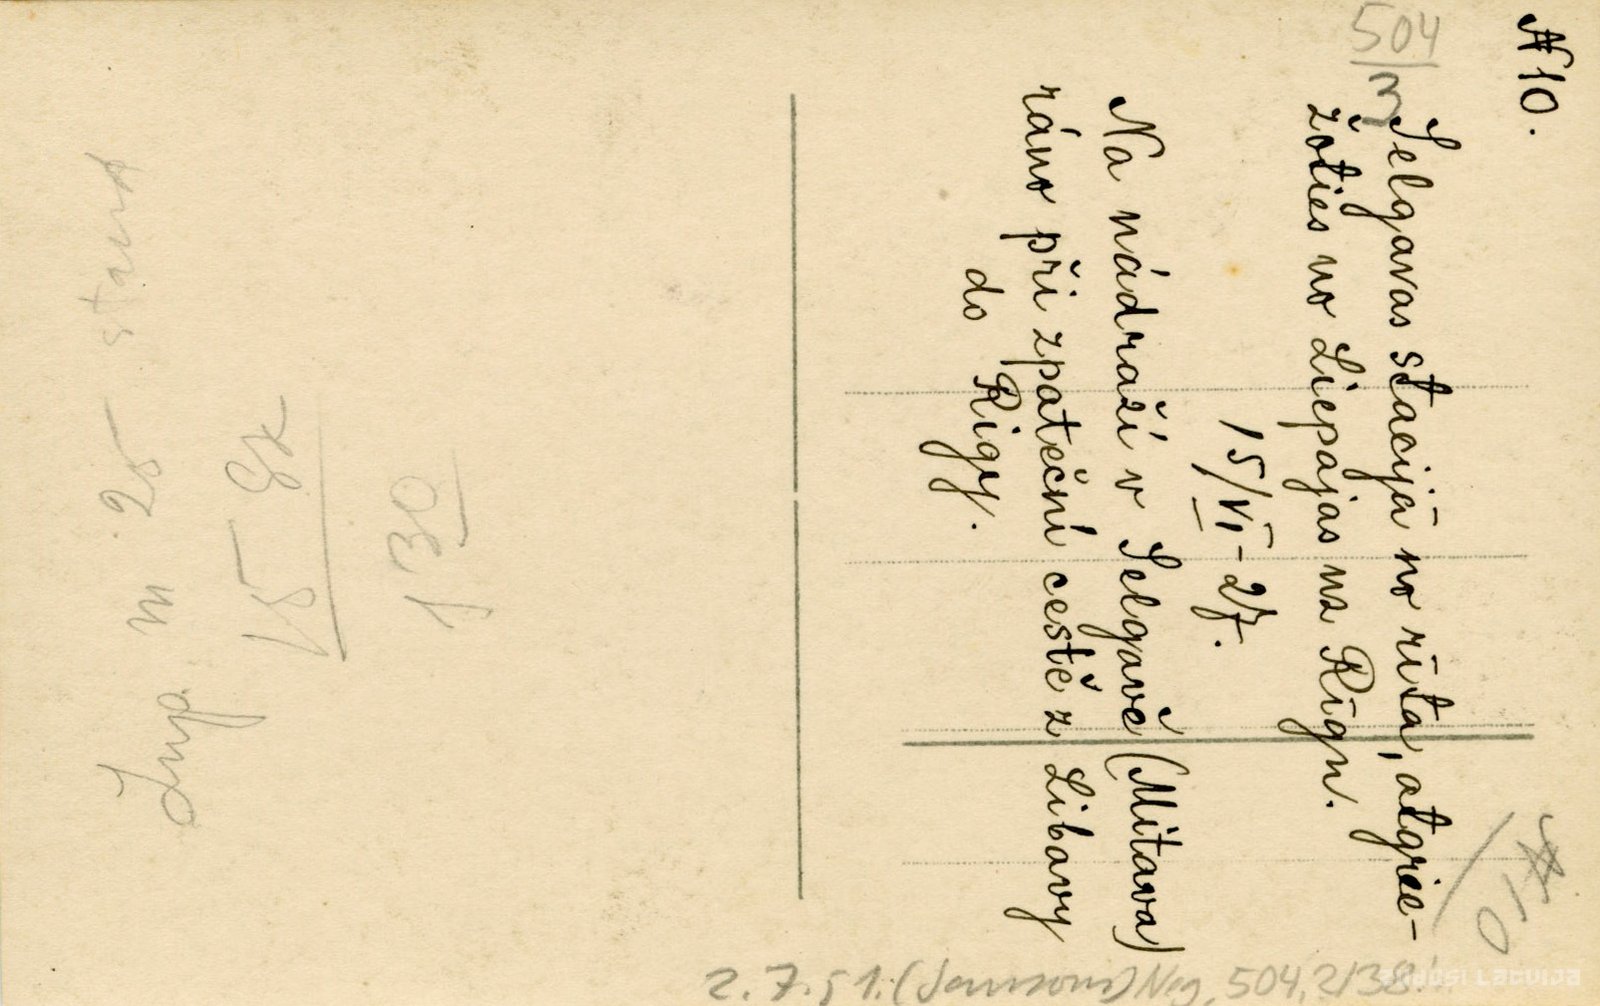 № 10.
504/3
Jelgavas stacijā no rīta, atgrie-
žoties no Liepājas uz Rīgu.
15/VI-27.
Na nádraží v Jelgavě (Mitava)
ráno při zpáteční cestě z Libavy
do Rigy.
№ 10
m 25
15 8x
130
2.7.51. (Jansons) Neg. 504, 2138.
zudusi Latvija